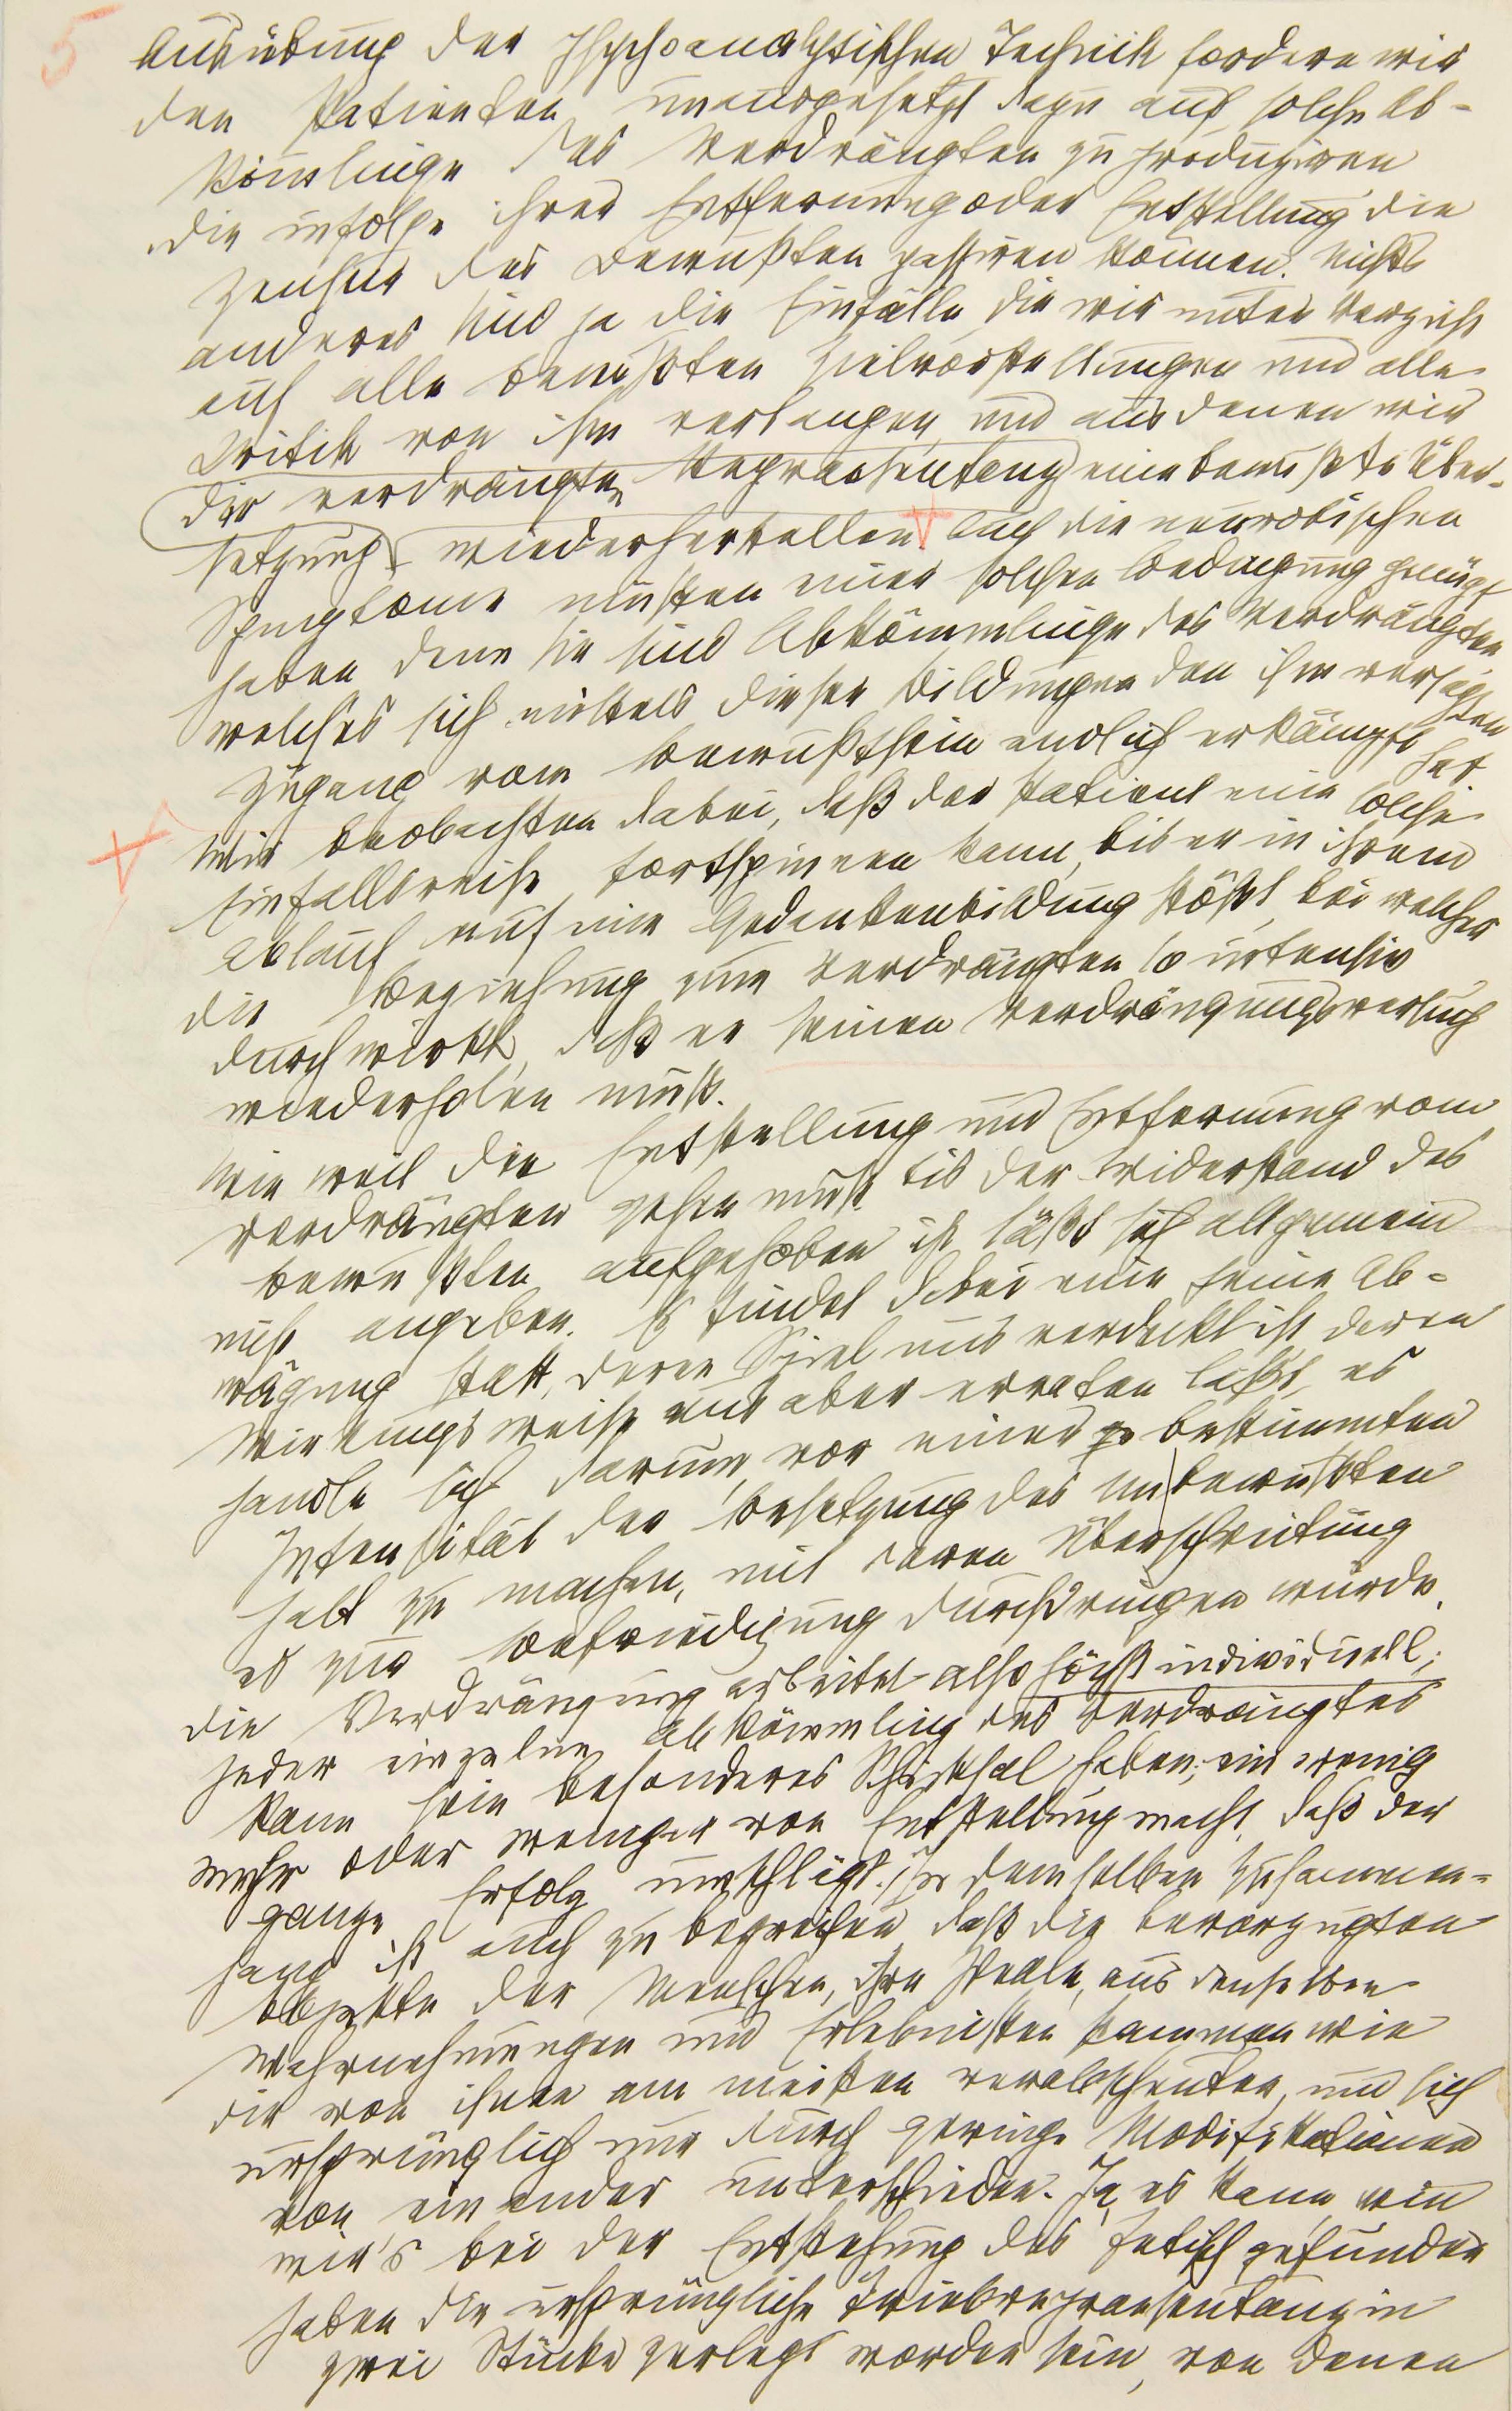 5
Ausübung der psychoanalytischen Technik fordern wir
den Patienten unausgesetzt dazu auf, solche Ab-
kömlinge des Verdrängten zu produziren
die infolge ihrer Entfernung oder Entstellung die
Zensur des Bewußten passiren können. Nichts
anderes sind ja die Einfälle die wir unter Verzicht
auf alle bewußten Zielvorstellungen und alle
Kritik von ihm verlangen und aus denen wir
der verdrängten Repraesentanz eine bewußte Über-
setzung wiederherstellen Auch die neurotischen
Symptome müssen einer solchen Bedingung genügt
haben denn sie sind Abkömmlinge des Verdrängten
welches sich mittels dieser Bildungen den ihm versagten
Zugang vom Bewußtsein endlich erkämpft hat
Wir beobachten dabei, daß der Patient eine solche
Einfallsreihe fortspinnen kann, bis er in ihrem
Ablauf auf eine Gedankenbildung stößt, bei welcher
die Beziehung zum Verdrängten so intensiv
durchwirkt, daß er seinen Verdrängungsversuch
wiederholen muß.
Wie weit die Entstellung und Entfernung vom
Verdrängten gehen muß bis der Widerstand des
Bewußten aufgehoben ist läßt sich allgemein
nicht angeben. Es findet dabei eine feine Ab-
wägung statt, deren Spiel uns verdeckt ist deren
Wirkungsweise uns aber erraten läßt, es
handle sich darum, vor einer bestimmten
Intensität der Besetzung des Unbewußten
halt zu machen, mit deren Überschreitung
es zur Befriedigung durchdringen würde.
Die Verdrängung arbeitet also höchst individuell;
jeder einzelne Abkömmling des Verdrängtes
kann sein besonderes Schicksal haben; ein wenig
mehr oder weniger von Entstellung macht, daß der
ganze Erfolg umschlägt. In demselben Zusammen-
hang ist auch zu begreifen daß die bevorzugten
Objekte der Menschen, ihre Ideale, aus denselben
Wahrnehmungen und Erlebnissen stammen wie
die von ihnen am meisten verabscheuten, und sich
ursprünglich nur durch geringe Modifikationen
von einander unterschieden. Ja, es kann, wie
wir's bei der Entstehung des Fetisch gefunden
haben die ursprüngliche Triebrepraesentanz in
zwei Stücke zerlegt worden sein, von denen